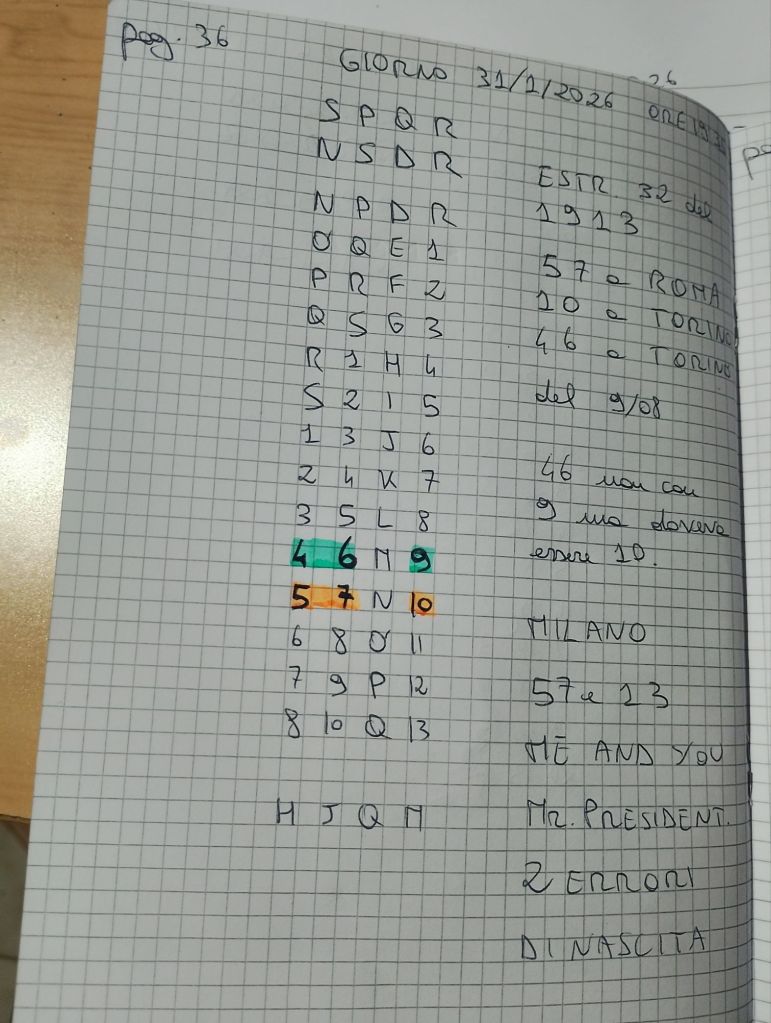 pag. 36
GIORNO 31/1/2026 ORE
S P Q R
N S D R
N P D R
O Q E 1
P R F 2
Q S G 3
R 1 H 4
S 2 I 5
1 3 J 6
2 4 K 7
3 5 L 8
4 6 M 9
5 7 N 10
6 8 O 11
7 9 P 12
8 10 Q 13
H J Q M
ESTR. 32 del
1913
57 a ROMA
10 a TORINO
46 a TORINO
del 9/08
46 non con
9 ma doveva
essere 10.
MILANO
57 e 13
ME AND YOU
Mr. PRESIDENT.
2 ERRORI
DI NASCITA
26